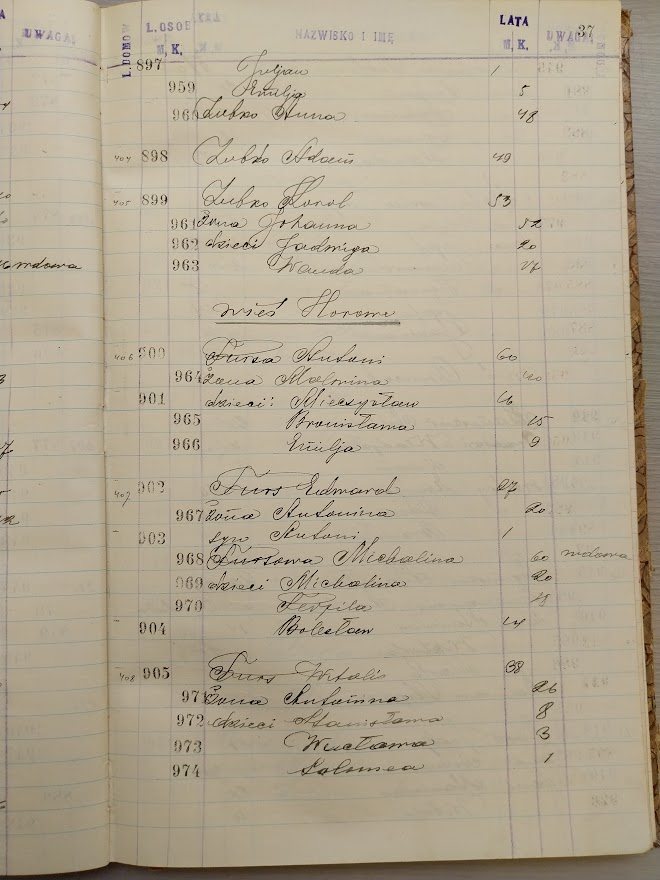 37
L. DOMÓW L. OSOB M. K. NAZWISKO I IMĘ LATA M. K. UWAGA
UWAGA!
897 Juljan 1
959 Emilja 5
960 Zubko Anna 48
404 898 Zubko Adam 49
405 899 Zubko Karol 53
961 żona Johanna 52
962 dzieci Jadwiga 20
wdowa
963 Wanda 17
wieś Horowe
406 900 Fursa Antoni 60
964 żona Malwina 40
901 dzieci: Mieczysław 16
965 Bronisława 15
966 Emilja 9
407 902 Furs Edward 27
967 żona Antonina 20
903 syn Antoni 1
968 Fursowa Michalina 60 wdowa
969 dzieci Michalina 20
970 Teofila 18
904 Bolesław 14
408 905 Furs Witalis 38
971 żona Antonina 26
972 dzieci Stanisława 8
973 Wacława 3
974 Salomea 1